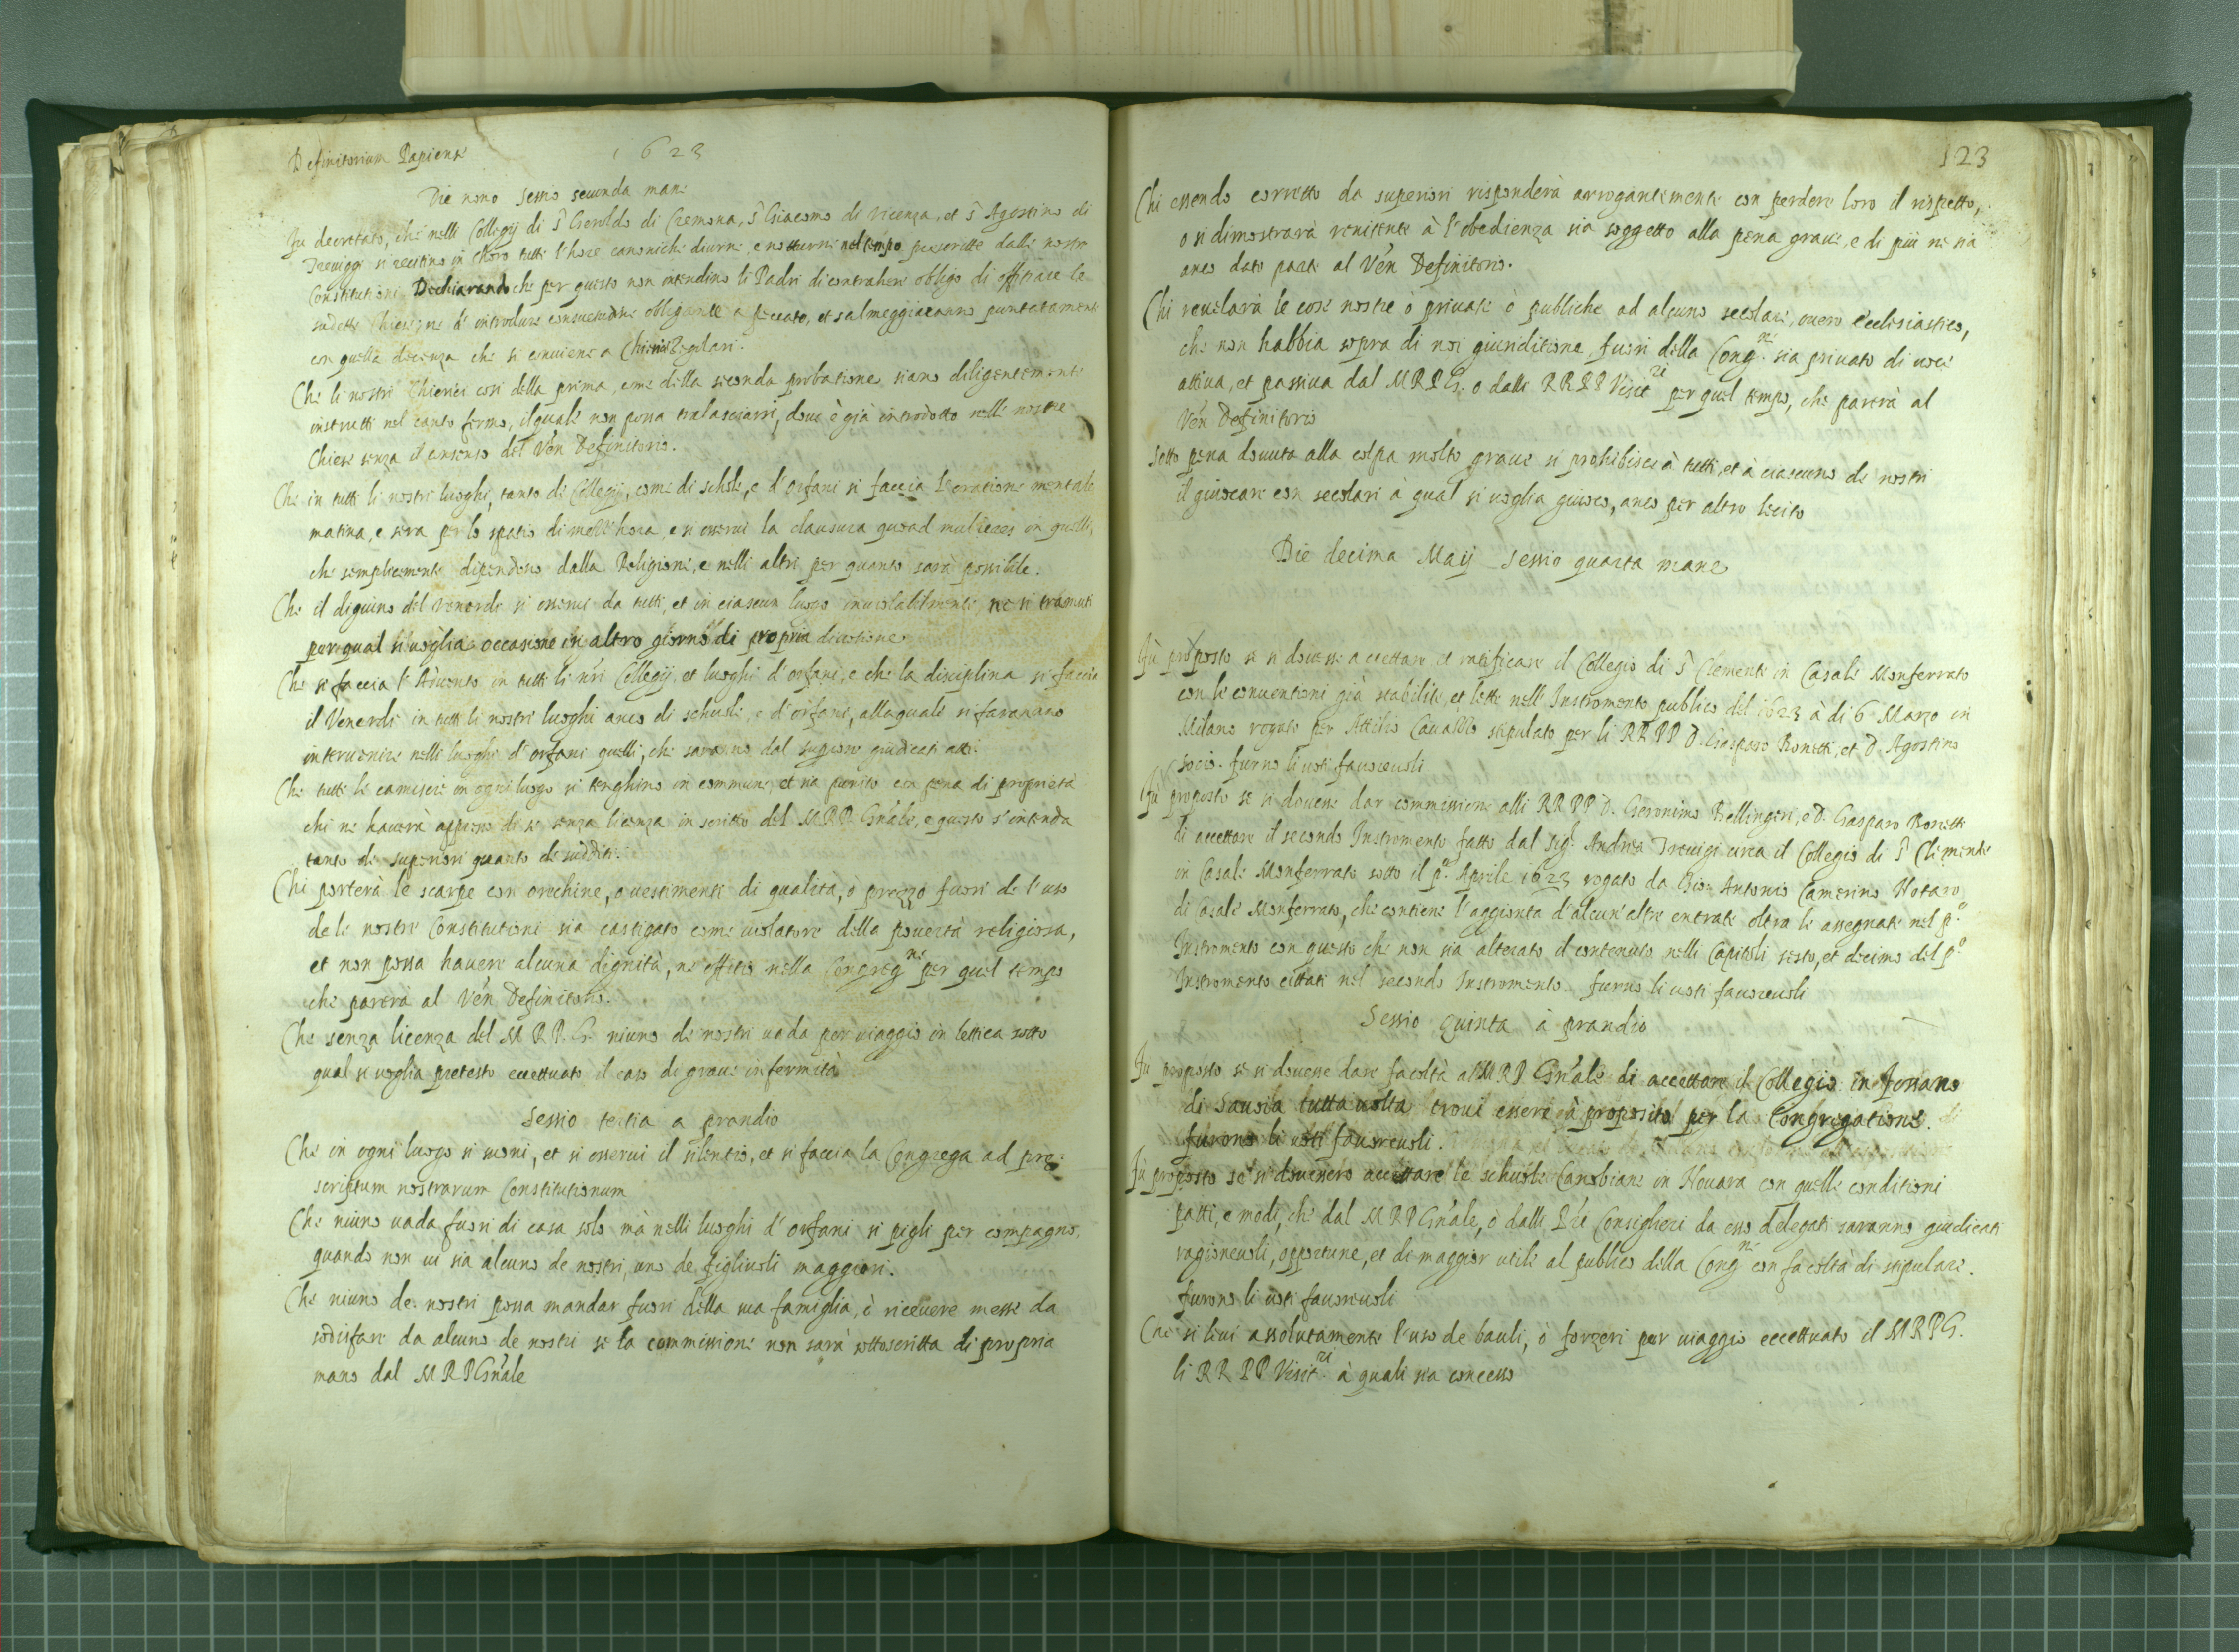 Definitorium Papiense
1623
Die nono Sessio secunda mane
Fu decretato, che nelli Collegij di S. Geroldo di Cremona, S. Giacomo di Vicenza, et S. Agostino di
Treviggi si recitino in choro tutte l'hore canoniche diurne, e notturne nel tempo prescritte dalle nostre
Constitutioni Dechiarando che per questo non intendino li Padri di contrahere obligo di offitiare le
sudette Chiese, ne d'introdure consuetudine obligante a peccato, et salmeggiaranno puntatamente
con quella decenza che si conviene a Chierici Regolari.
Che li nostri Chierici cosi della prima come della seconda probatione siano diligentemente
instrutti nel canto fermo, il quale non possa tralasciarsi, dove è già introdotto nelle nostre
Chiese senza il consenso del Ven Definitorio.
Che in tutti li nostri luoghi, tanto di Collegij, come di schole, e d'orfani si faccia l'oratione mentale
matina, e sera per lo spatio di mezz'hora, e si osservi la clausura quoad mulieres in quelli,
che semplicemente dipendono dalla Religione, e nelli altri per quanto sarà possibile.
Che il digiuno del venerdi si osservi da tutti, et in ciascun luogo inviolabilmente, ne si tramuti
per qual si voglia occasione in altro giorno di propria divotione
Che si faccia l'Advento in tutti li nri Collegij, et luoghi d'orfani, e che la disciplina si faccia
il Venerdi in tutti li nostri luoghi anco di schuole, e d'orfani, alla quale si faranno
intervenire nelli luoghi d'orfani quelli, che saranno dal superiore giudicati atti.
Che tutte le camiscie in ogni luogo si tenghino in commune, et sia punito con pena di proprietà
chi ne haverà appresso di se senza licenza in scritto del MRP Gn'ale, e questo s'intenda
tanto de superiori quanto de sudditi.
Chi porterà le scarpe con orechine, o vestimenti di qualità, ò prezzo fuori de l'uso
dele nostre Constitutioni sia castigato come violatore della povertà religiosa,
et non possa havere alcuna dignità, ne offitio nella Congreg.ne per quel tempo
che parerà al Ven Definitorio.
Che senza licenza del M R P. G. niuno de nostri vada per viaggio in lettica sotto
qual si voglia pretesto eccettuato il caso di grave infermità
Sessio tertia a prandio
Che in ogni luogo si suoni, et si osservi il silentio, et si faccia la Congrega ad pre-
scriptum nostrarum Constitutionum
Che niuno vada fuori di casa solo mà nelli luoghi d'orfani si pigli per compagno,
quando non vi sia alcuno de nostri, uno de figliuoli maggiori.
Che niuno de nostri possa mandar fuori della sua famiglia, ò ricevere messe da
sodisfare da alcuno de nostri se la commissione non sarà sottoscritta di propria
mano dal MRP Gn'ale
123
Chi essendo corretto da superiori risponderà arrogantemente con perdere loro il rispetto,
o si dimostrarà renitente à l'obedienza sia soggetto alla pena grave, e di più ne sia
anco dato parte al Ven Definitorio.
Chi revelarà le cose nostre ò private ò publiche ad alcuno secolare, overo ecclesiastico,
che non habbia sopra di noi giuriditione fuori della Cong.ne sia privato di voce
attiva, et passiva dal MRPG. o dalli RRPP Visit.ri per quel tempo, che parerà al
Ven Definitorio
Sotto pena dovuta alla colpa molto grave si prohibisce à tutti, et à ciascuno de nostri
il giuocare con secolari à qual si voglia giuoco, anco per altro lecito
Die decima Maij Sessio quarta mane
Fù proposto se si dovesse accettare et ratificare il Collegio di S. Clemente in Casale Monferrato
con le conventioni già stabilite, et lette nell Instromento publico del 1623 à di 6 Marzo in
Milano rogato per Attilio Cavallo stipulato per li RRPP D. Gasparo Bonetti, et D. Agostino
Socio. furno li voti favorevoli
Fù proposto se si dovesse dar commissione alli RRPP D. Geronimo Bellingeri, e D. Gasparo Bonetti
di accettare il secondo Instromento fatto dal Sig. Andrea Trevigi circa il Collegio di S. Clemente
in Casale Monferrato sotto il p.o Aprile 1623 rogato da Gio: Antonio Camerino Notaro
di Casale Monferrato, che contiene l'aggionta d'alcun'altre entrate oltra le assegnate nel p.o
Instromento con questo che non sia alterato il contenuto nelli Capitoli sesto, et decimo del p.o
Instromento cittati nel secondo Instromento. furno li voti favorevoli
Sessio quinta à prandio
Fu proposto se si dovesse dare facoltà al MRP Gn'ale di accettare il Collegio in Fossano
di Savoia tutta volta trovi essere à proposito per la Congregatione.
furono li voti favorevoli.
Fù proposto se si dovessero accettare le schuole Canobiane in Novara con quelle conditioni
patti, e modi, che dal MRP Gn'ale, ò dalli P.ri Consiglieri da esso delegati saranno giudicati
ragionevoli, opportune, et di maggior utile al publico della Cong.ne con facoltà di stipulare.
furono li voti favorevoli
Che si levi assolutamente l'uso de bauli, ò forzeri per viaggio eccettuato il MRPG.
li RR PP Visit.ri à quali sia concesso